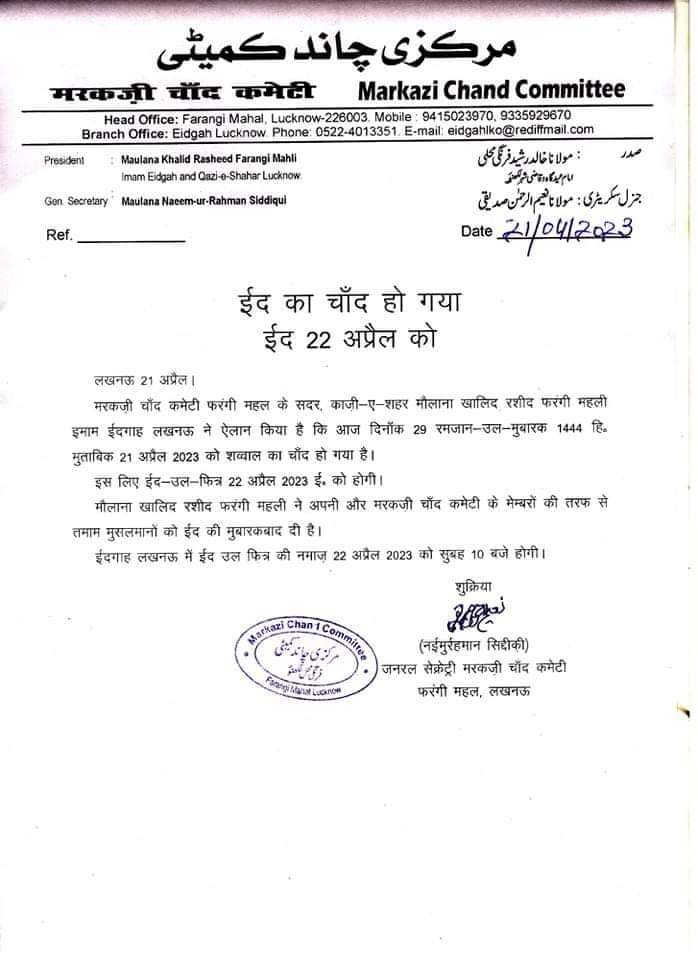 مرکزی چاند کمیٹی
मरकज़ी चाँद कमेटी Markazi Chand Committee
Head Office: Farangi Mahal, Lucknow-226003. Mobile : 9415023970, 9335929670
Branch Office: Eidgah Lucknow. Phone: 0522-4013351. E-mail: eidgahlko@rediffmail.com
President : Maulana Khalid Rasheed Farangi Mahli صدر : مولانا خالد رشید فرنگی محلی
Imam Eidgah and Qazi-e-Shahar Lucknow. امام عیدگاہ وقاضی شہر لکھنؤ
Gen. Secretary : Maulana Naeem-ur-Rahman Siddiqui جنرل سکریٹری : مولانا نعیم الرحمٰن صدیقی
Ref. Date 21/04/2023
ईद का चाँद हो गया
ईद 22 अप्रैल को
लखनऊ 21 अप्रैल।
मरकज़ी चाँद कमेटी फरंगी महल के सदर, काज़ी-ए-शहर मौलाना खालिद रशीद फरंगी महली
इमाम ईदगाह लखनऊ ने ऐलान किया है कि आज दिनाँक 29 रमजान-उल-मुबारक 1444 हि॰
मुताबिक 21 अप्रैल 2023 को शव्वाल का चाँद हो गया है।
इस लिए ईद-उल-फित्र 22 अप्रैल 2023 ई॰ को होगी।
मौलाना खालिद रशीद फरंगी महली ने अपनी और मरकज़ी चाँद कमेटी के मेम्बरों की तरफ से
तमाम मुसलमानों को ईद की मुबारकबाद दी है।
ईदगाह लखनऊ में ईद उल फित्र की नमाज़ 22 अप्रैल 2023 को सुबह 10 बजे होगी।
शुक्रिया
(नईमुर्रहमान सिद्दीकी)
जनरल सेक्रेट्री मरकज़ी चाँद कमेटी
फरंगी महल, लखनऊ
Markazi Chan Committee
مرکزی چاند کمیٹی
فرنگی محل لکھنؤ
Farangi Mahal Lucknow